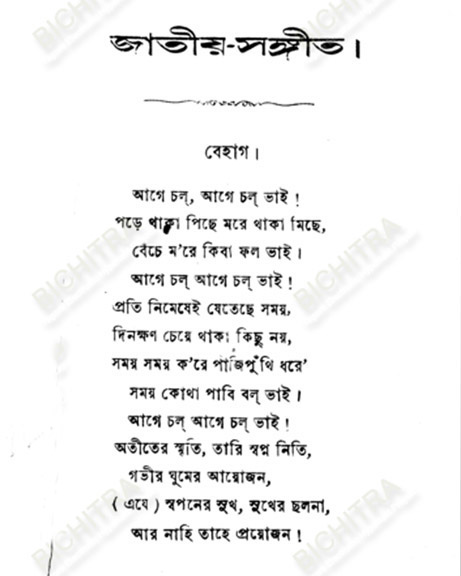 জাতীয়-সঙ্গীত।
বেহাগ।
আগে চল্, আগে চল্ ভাই !
পড়ে থাকা পিছে মরে থাকা মিছে,
বেঁচে ম'রে কিবা ফল ভাই।
আগে চল্ আগে চল্ ভাই !
প্রতি নিমেষেই যেতেছে সময়,
দিনক্ষণ চেয়ে থাকা কিছু নয়,
সময় সময় ক'রে পাঁজিপুঁথি ধরে'
সময় কোথা পাবি বল্ ভাই।
আগে চল্ আগে চল্ ভাই !
অতীতের স্মৃতি, তারি স্বপ্ন নিতি,
গভীর ঘুমের আয়োজন,
( এযে ) স্বপনের সুখ, সুখের ছলনা,
আর নাহি তাহে প্রয়োজন !
BICHITRA
BICHITRA
BICHITRA
BICHITRA
BICHITRA
BICHITRA